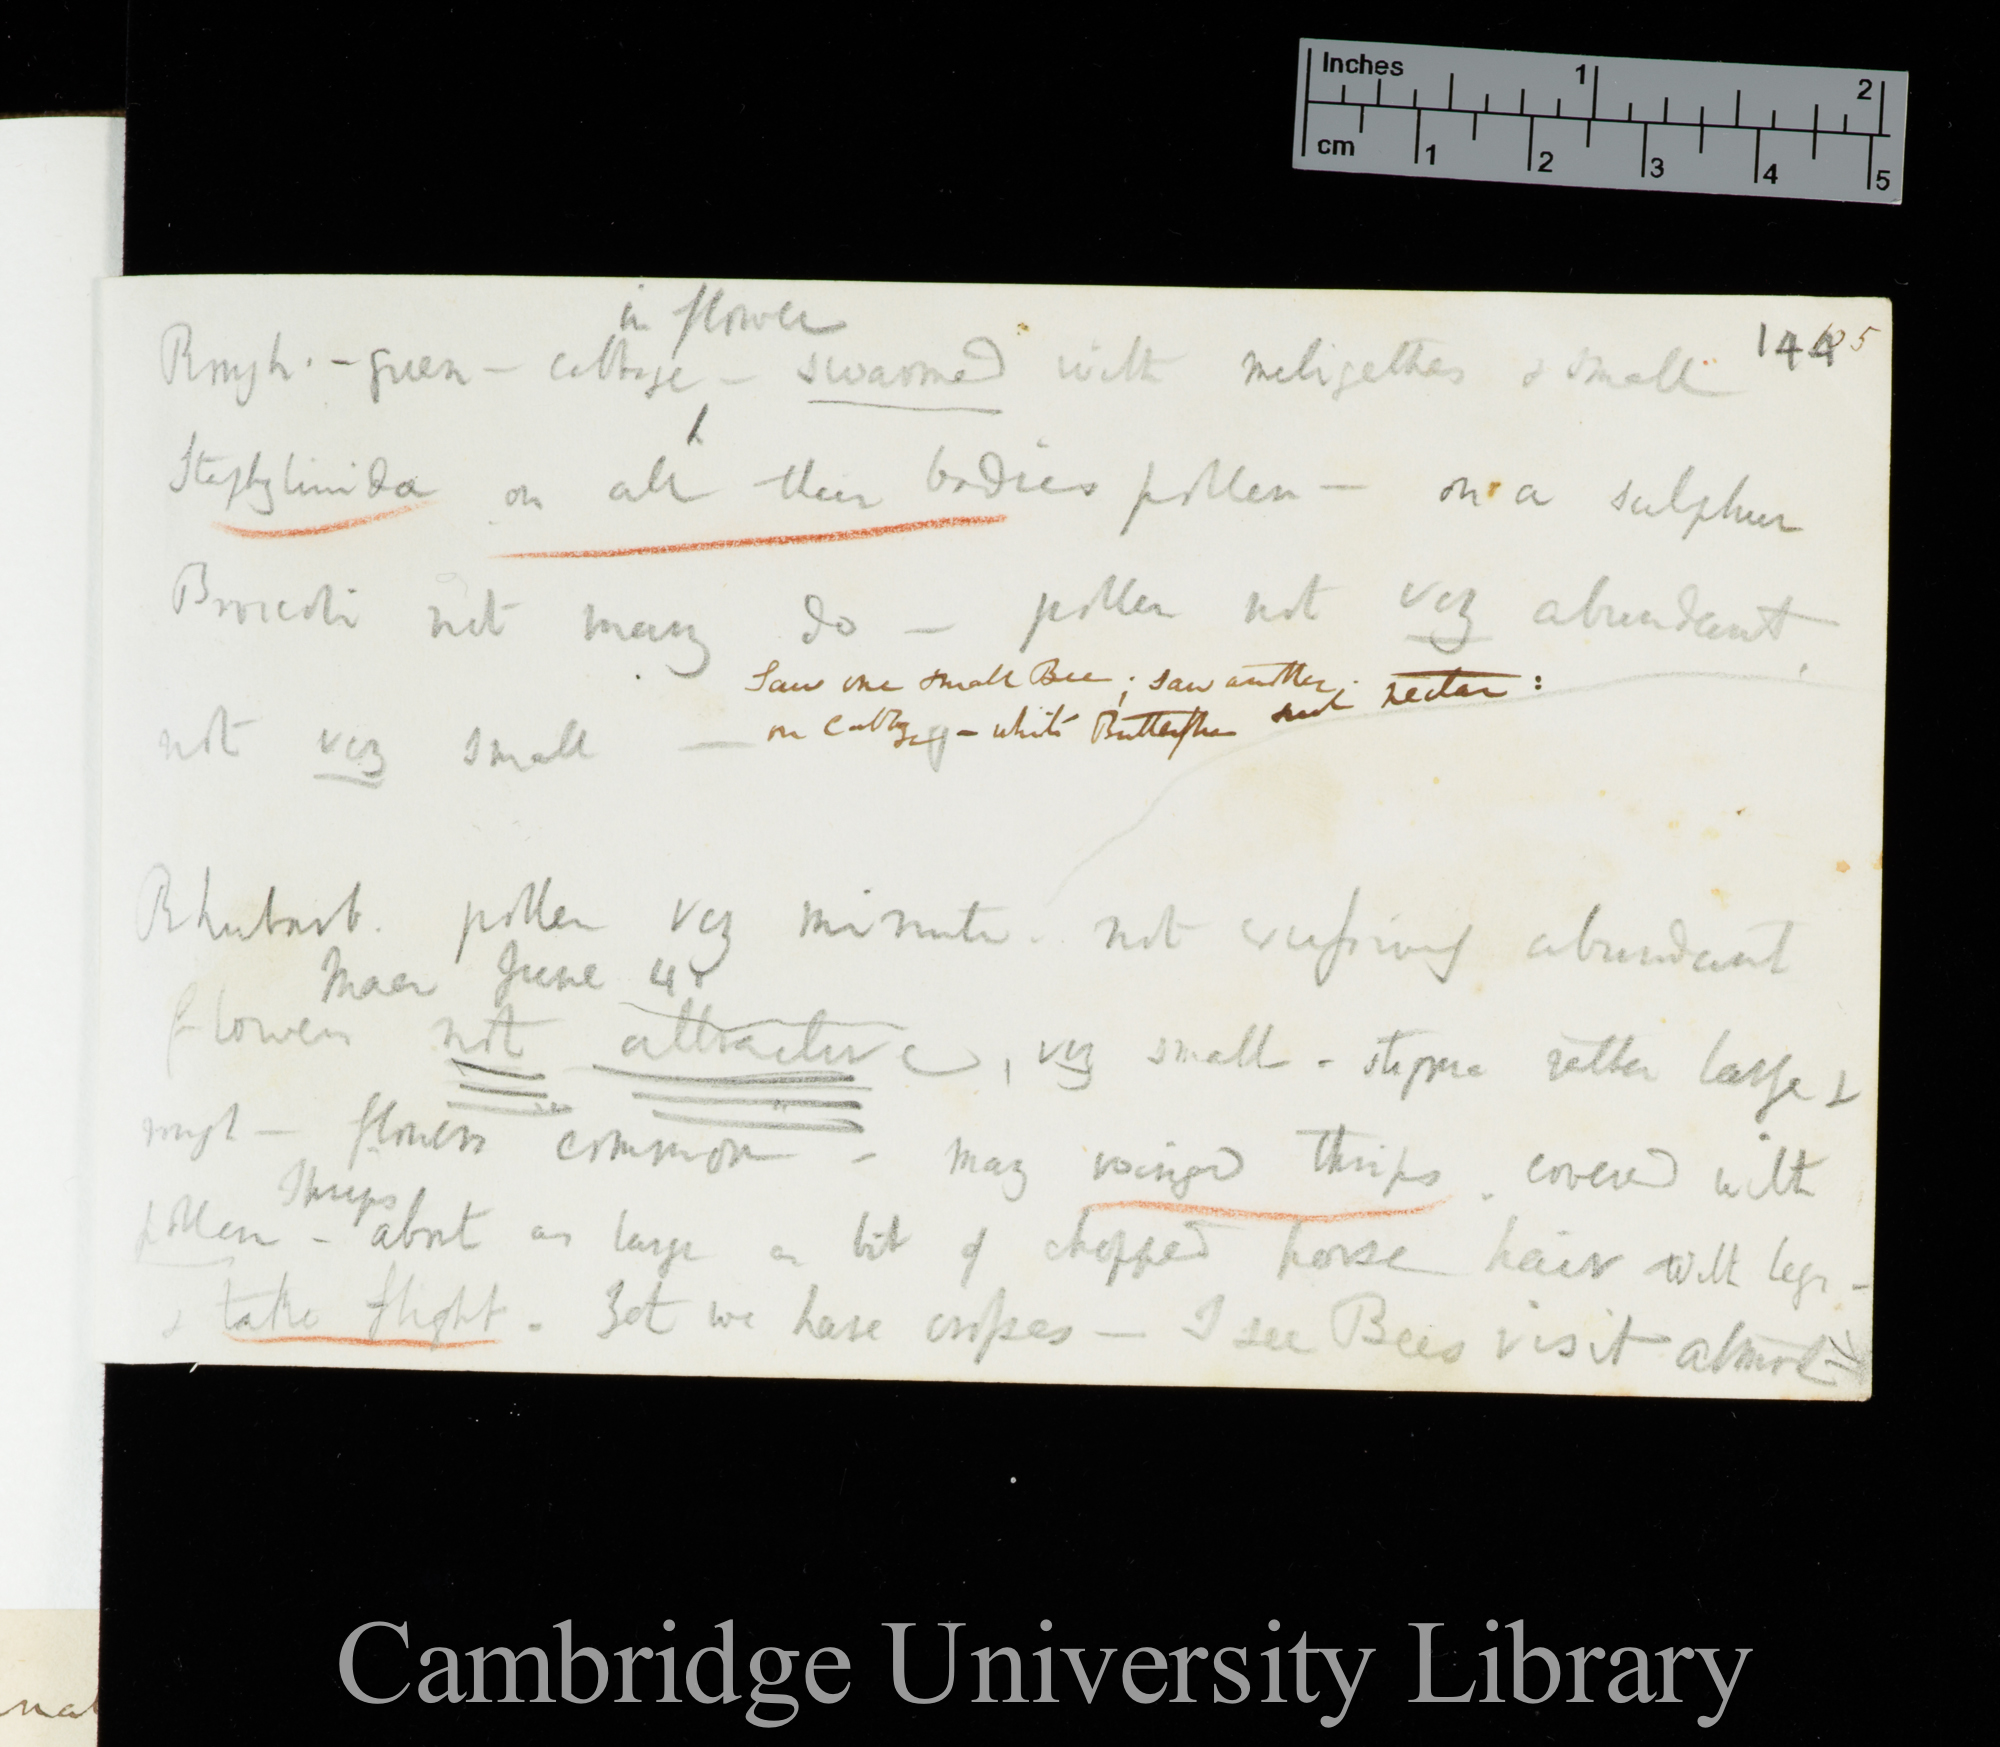 Inches 1 2
cm 1 2 3 4 5
144
in flower
Rough - green - cabbage - swarmed with meligethes & small
Staphylinidæ on all their bodies pollen — on a sulphur
Broccoli not many do — pollen not very abundant,
Saw one small Bee; saw another; suck nectar:
on Cabbage - white Butterflies
not very small —
Rhubarb. pollen very minute. not excessively abundant
Maer June 41
flowers not attractive, very small - stigma rather large &
rough — flowers common - many winged thrips. covered with
Thrips
pollen - about as large as bit of chopped horse hair with legs -
& take flight. Yet we have crosses — I see Bees visit almost
Cambridge University Library